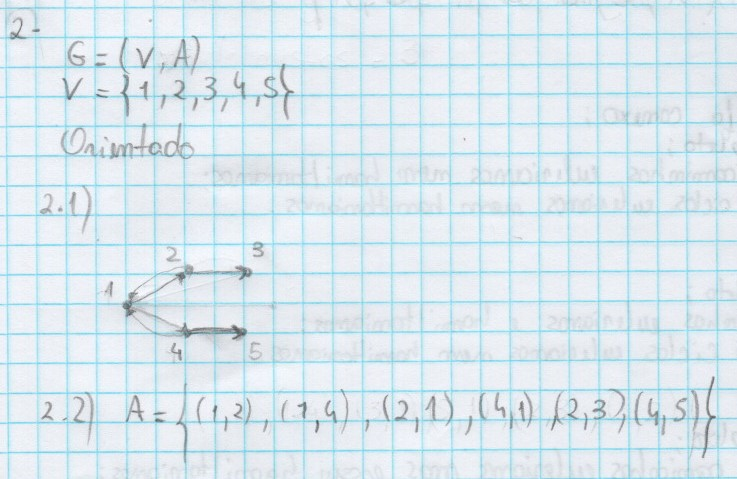 2-
G = (V, A)
V = {1, 2, 3, 4, 5}
Orientado
2.1)
2 3
1
4 5
2.2) A = {(1,2), (1,4), (2,1), (4,1), (2,3), (4,5)}